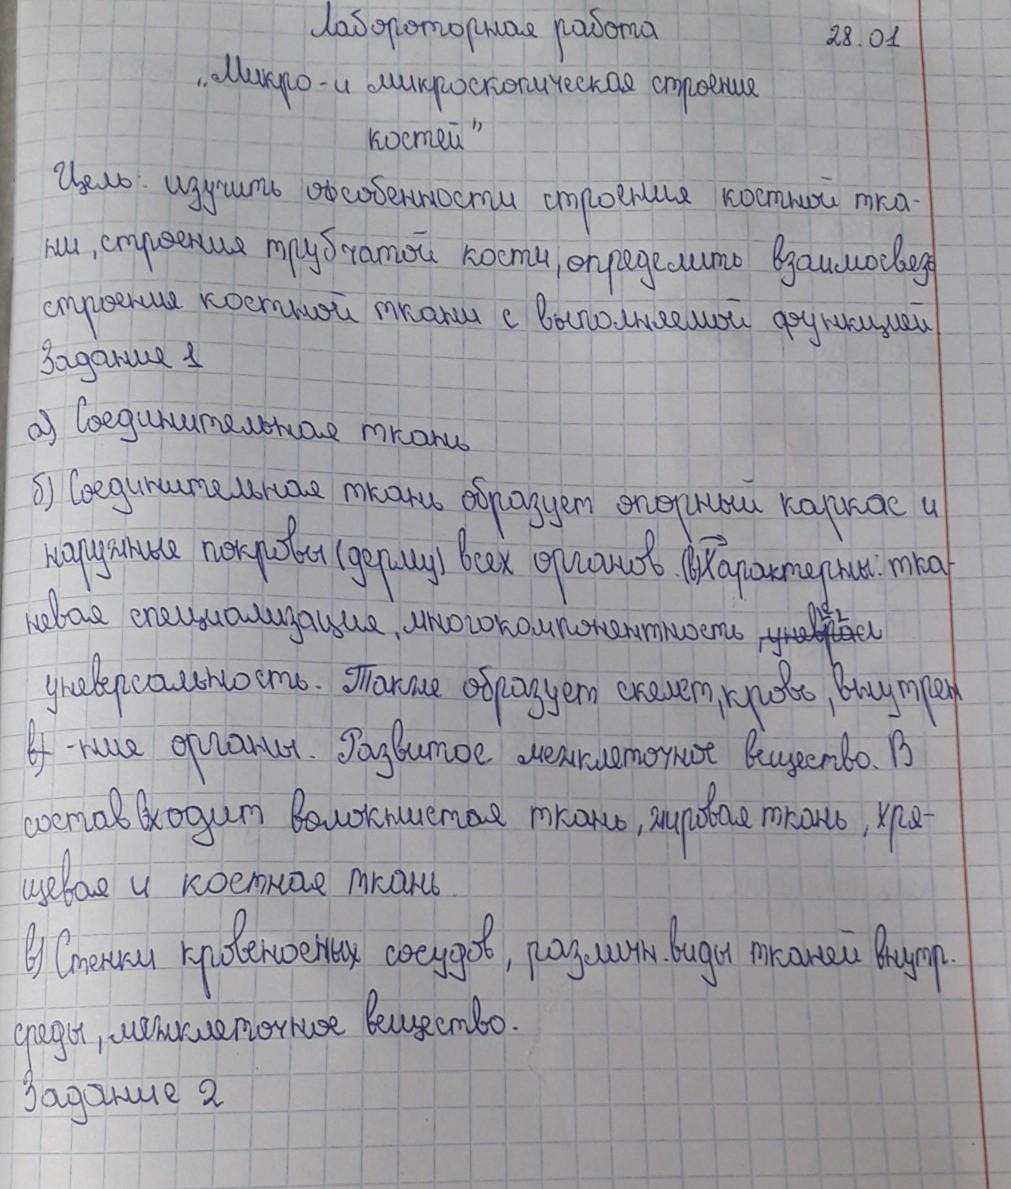 Лабороторная работа 28.01
„Микро-и микроскопическая строение
костей"
Цель: изучить особенности строения костной тка-
ни, строения трубчатой кости, определить взаимосвез
строения костной ткани с выполняемой функцией
Задание 1
а) Соединительная ткань
б) Соединительная ткань образует опорный каркас и
наружные покровы (дерму) всех органов. (в) Характерны: тка-
невая специализация, многокомпонентность,
универсальность. Также образует скелет, кровь, внутрен
в) -ние органы. Развитое межклеточное вещество. В
состав входит волокнистая ткань, жировая ткань, хря-
щевая и костная ткань
в) Стенки кровеносных сосудов, различн. виды тканей внутр.
среды, межклеточное вещество.
Задание 2